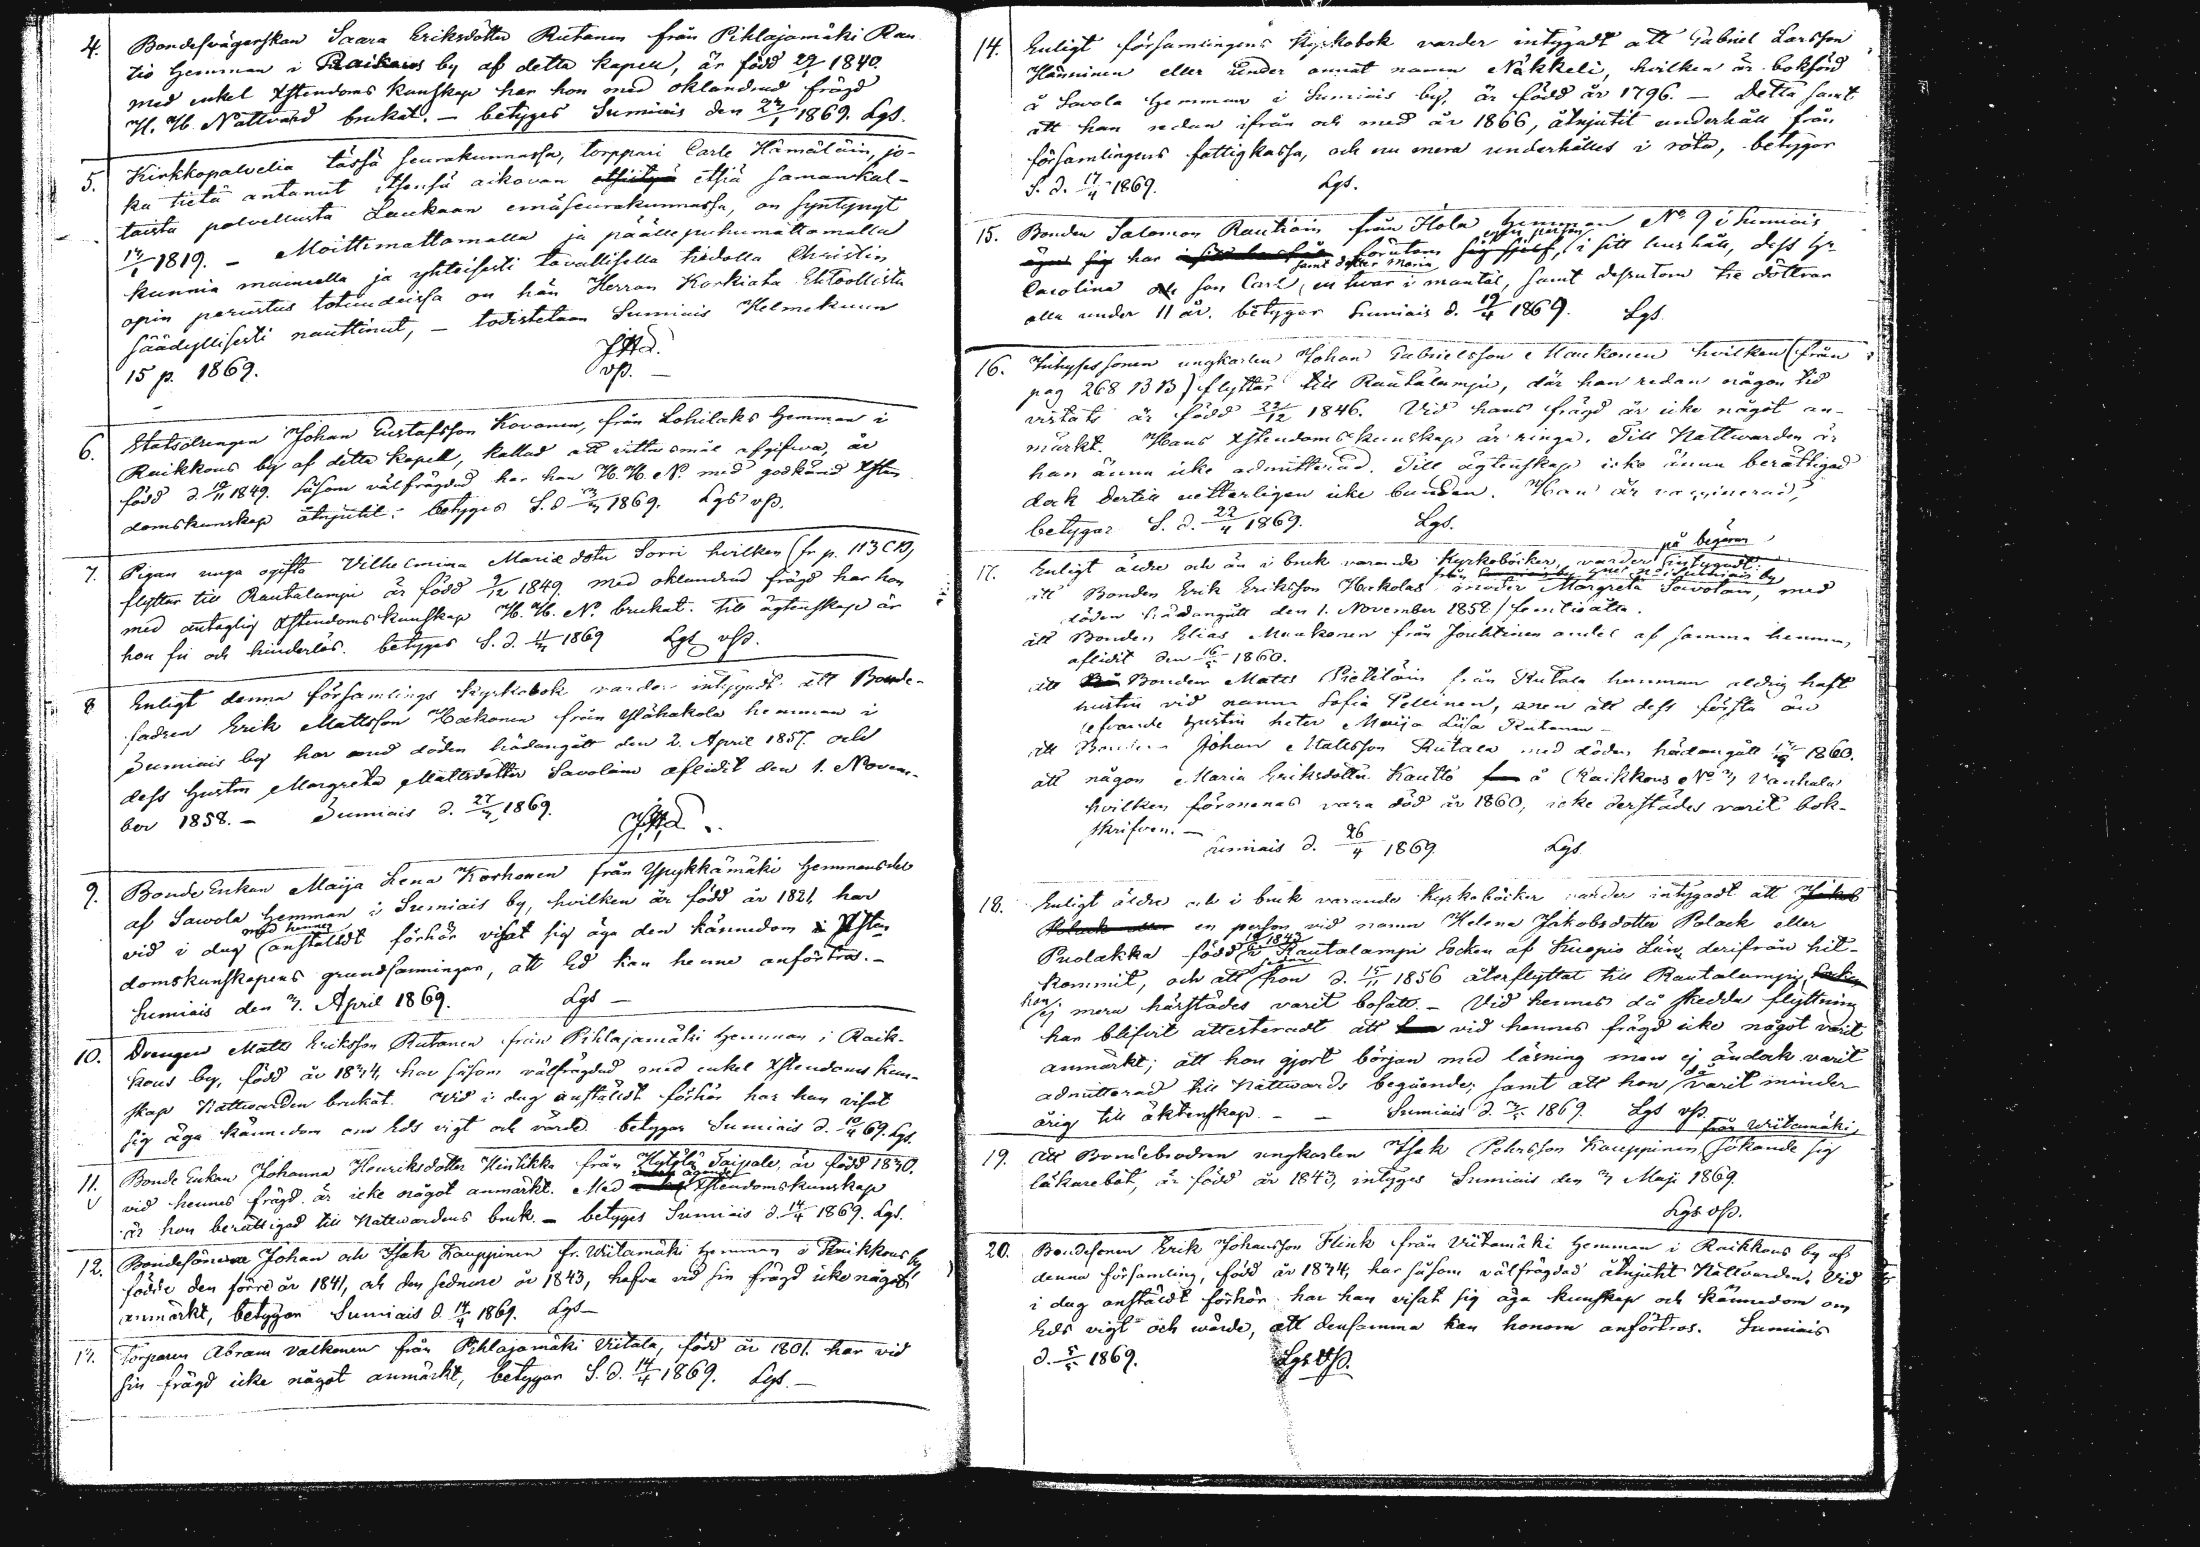 4. Bondesvägerskan Saara Eriksdotter Rutanen från Pihlajamäki Rau
tio Hemman i Raikkaus by af detta kapell, är född 29/1 1840.
med enkel Xstendoms kunskap har hon med oklandrad frägd
H. H. Nattvard brukat. – betyges Sumiais den 1869. Lgs.
5. Kirkkopalvelia tässä seurakunnassa, torppari Carle Hämäläin, jo-
ka tietä antanut itsensä aikovan etsiä samankal-
taista palvellusta Laukaan emäseurakunnassa, on syntynyt
1819. – Moittimattomalla ja päällepuhumattomalla
kunnia maineella ja yhteisesti tavallisella tiedolla Christin
opin perustus totuudeissa on hän Herran Korkiata Ehtoollista
säädyllisesti nauttinut, – todistetaan Sumiais Helmekuun
15 p. 1869.
6. Statsdrengen Johan Gustafsson Kovanen, från Lohilaks Hemman i
Raikkaus by af detta kapell, kallad att vittnesmål afgifva, är
född d. 1849. Såsom välfrägdad har han H. H. N. med godkänd Xsten
domskunskap åtnjutit; betyges S. d. 1869. Lgs vp.
7. Pigan unga ogifta Vilhelmina Mariædotter Sorri hvilken (fr p. 113 CB)
flyttar till Rautalampi är född 9/12 1849. med oklandrad frägd har hon
med antaglig Xstendoms kunskap H. H. N. brukat. Till ägtenskap är
hon fri och hinderlös. betyges S. d. 1869 Lgs vp.
8 Enligt denna församlings Kyrkobok varder intygadt att Bonde-
fadren Erik Mattsson Hækonen från Ylähakola hemman i
Sumiais by har med döden hädangått den 2. April 1857. och
dess Hustru Margreta Mattsdotter Savolain aflidit den 1. Novem-
ber 1858. – Sumiais d. 1869.
9. Bonde Enkan Maija Lena Korhonen från Ypykkämäki Hemmansdel
af Sawola Hemman i Sumiais by, hvilken är född år 1821, har
vid i dag med henne anstäldt förhör visat sig äga den kännedom i Xsten
domskunskapens grundsanningar, att Ed kan henne anförtros. –
Sumiais den 7. April 1869. Lgs –
10. Drengen Matts Eriksson Rutanen från Pihlajamäki Hemman i Raik-
kaus by, född år 1844, har såsom välfrägdad med enkel Xstendoms kun-
skap Nattvarden brukat. Vid i dag anstäldt förhör har han visat
sig äga kännedom om Eds vigt och värde. betygar Sumiais d. 69. Lgs.
11. Bonde Enkan Johanna Henriksdotter Hintikka från Hytölä Taipale, är född 1830.
vid hennes frägd är icke något anmärkt. Med ägande Xstendomskunskap
är hon berättigad till Nattwardens bruk. – betyges Sumiais d. 14/4 1869. Lgs.
12. Bondesönerne Johan och Isak Kauppinen fr. Witamäki Hemman i Raikkaus by
födde den förre år 1841, och den sednere år 1843, hafva vid sin frägd icke något
anmärkt, betygar Sumiais d. 14/4 1869. Lgs –
13. Torparen Abram Valkonen från Pihlajamäki Viitala, född år 1801. har vid
sin frägd icke något anmärkt, betygar S. d. 14/4 1869. Lgs. –
14. Enligt församlingens Kyrkobok varder intygadt att Gabriel Larsson
Hänninen eller under annat namn Näkkeli, hvilken är bokförd
å Savola Hemman i Sumiais by, är född år 1796. – Detta samt
att han redan ifrån och med år 1866, åtnjutit underhåll från
församlingens fattigkassa, och nu mera underhålles i rota, betygar
S. d. 17/4 1869. Lgs.
15. Bonden Salomon Rautiain från Hola Hemman No 9 i Sumiais
har förutom i sitt hushåll, dess Hu
Carolina samt dotter Maria son Carl, en hvar i mantal, samt dessutom tre döttrar
alla under 11 år. betygar Sumiais d. 19/4 1869. Lgs.
16. Inhysessonen ungkarlen Johan Gabrielsson Maukonen hvilken (från
pag 268 BB) flyttar till Rautalampi, där han redan någon tid
vistats är född 1846. Vid hans frägd är icke något an-
märkt. Hans Xstendomskunskap är ringa. Till Nattvarden är
han ännu icke admitterad. Till ägtenskap icke ännu berättigad
dock dertill vetterligen icke bunden. Han är vaccinerad,
betygar S. d. 22/4 1869. Lgs.
17. Enligt äldre och än i bruk varande Kyrkoböcker, varder på begäran intygadt:
att Bonden Erik Eriksson Hækolas moder Margreta Savolain, med
döden hädangått den 1. November 1858 / femtioåtta.
att Bonden Elias Maukonen från Jouhtinen andel af samma hemman
aflidit den 1860.
att Bonden Matts Pietiläin från Rutala hemman aldrig haft
hustru vid namn Sofia Pellinen, utan att dess första än
lefvande hustru heter Maija Liisa Rutanen –
att Bonden Johan Mattsson Rutala med döden hädangått 1860.
att någon Maria Eriksdotter Kautto å Raikkaus No 7 Vanhala
hvilken förmenas vara död år 1860, icke derstädes varit bok-
skrifven. –
Sumiais d. 26/4 1869. Lgs.
18. Enligt äldre och i bruk varande Kyrkoböcker varder intygadt att
en person vid namn Helena Jakobsdotter Polack eller
Puolakka född 1843 i Rautalampi Socken af Kuopio Län, derifrån hit-
kommit, och att hon sedan d. 1856 återflyttat till Rautalampi,
hon ej mera härstädes varit bosatt. – Vid hennes då skedda flyttning
har blifvit attesteradt att vid hennes frägd icke något varit
anmärkt; att hon gjort början med läsning men ej ändock varit
admitterad till Nattwards begående; samt att hon då varit minder
årig till äktenskap. – – Sumiais d. 1869. Lgs vp.
19. Att Bondebrodren ungkarlen Isak Pehrsson Kauppinen från Witamäki, sökande sig
läkarebot, är född år 1843, intyges Sumiais den 7 Maji 1869.
Lgs vp.
20. Bondesonen Erik Johansson Flink från Viitamäki Hemman i Raikkaus by af
denna församling, född år 1844, har såsom välfrägdad åtnjutit Nattvarden. Vid
i dag anstäldt förhör har han visat sig äga kunskap och kännedom om
Eds vigt och wärde, att densamma kan honom anförtros. Sumiais
d. 5/5 1869. Lgs vp.